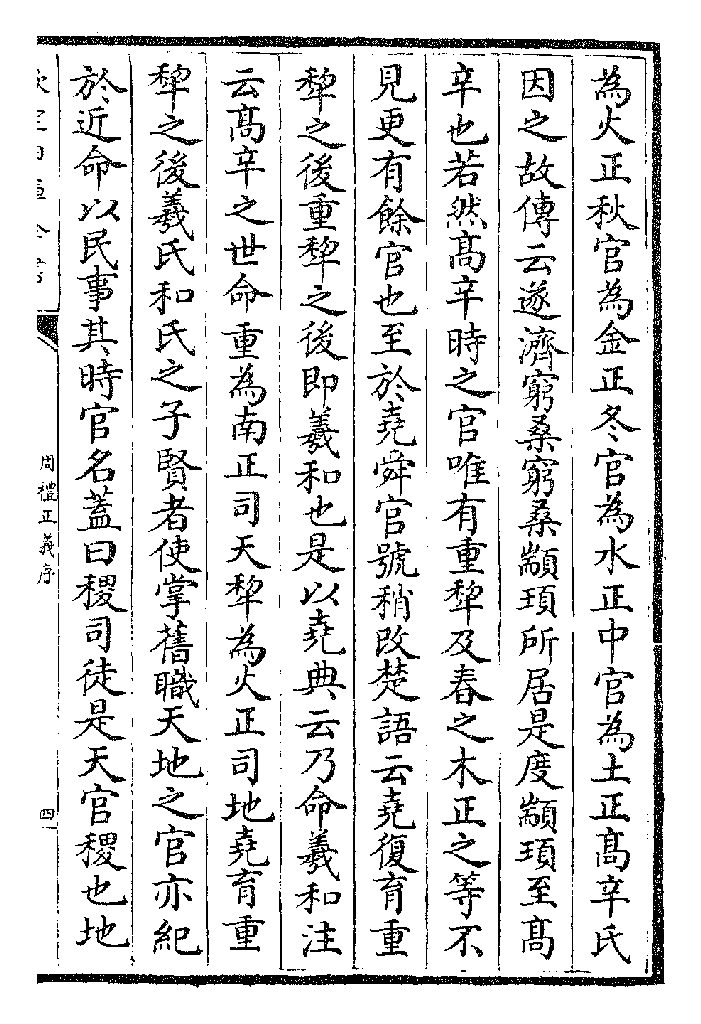 為火正秋官為金正冬官為水正中官為土正髙辛氏
因之故傳云遂濟窮桑窮桑顓頊所居是度顓頊至髙
辛也若然髙辛時之官唯有重犂及春之木正之等不
見更有餘官也至於堯舜官號稍改楚語云堯復育重
犂之後重犂之後即羲和也是以堯典云乃命羲和注
云髙辛之世命重為南正司天犂為火正司地堯育重
犂之後羲氏和氏之子賢者使掌舊職天地之官亦紀
於近命以民事其時官名蓋曰稷司徒是天官稷也地
周禮正義序
四